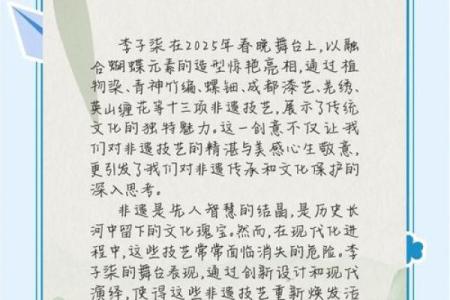 李子柒在2025年春晚舞台上,以融
合蝴蝶元素的造型惊艳亮相,通过植
物染、青神竹编、螺钿、成都漆艺、羌绣、
英山缠花等十三项非遗技艺,展示了传统
文化的独特魅力。这一创意不仅让我
们对非遗技艺的精湛与美感心生敬意,
更引发了我们对非遗传承和文化保护的
深入思考。
非遗是先人智慧的结晶,是历史长
河中留下的文化瑰宝。然而,在现代化进
程中,这些技艺常常面临消失的危险。李
子柒的舞台表现,通过创新设计和现代
演绎,使得这些非遗技艺重新焕发活